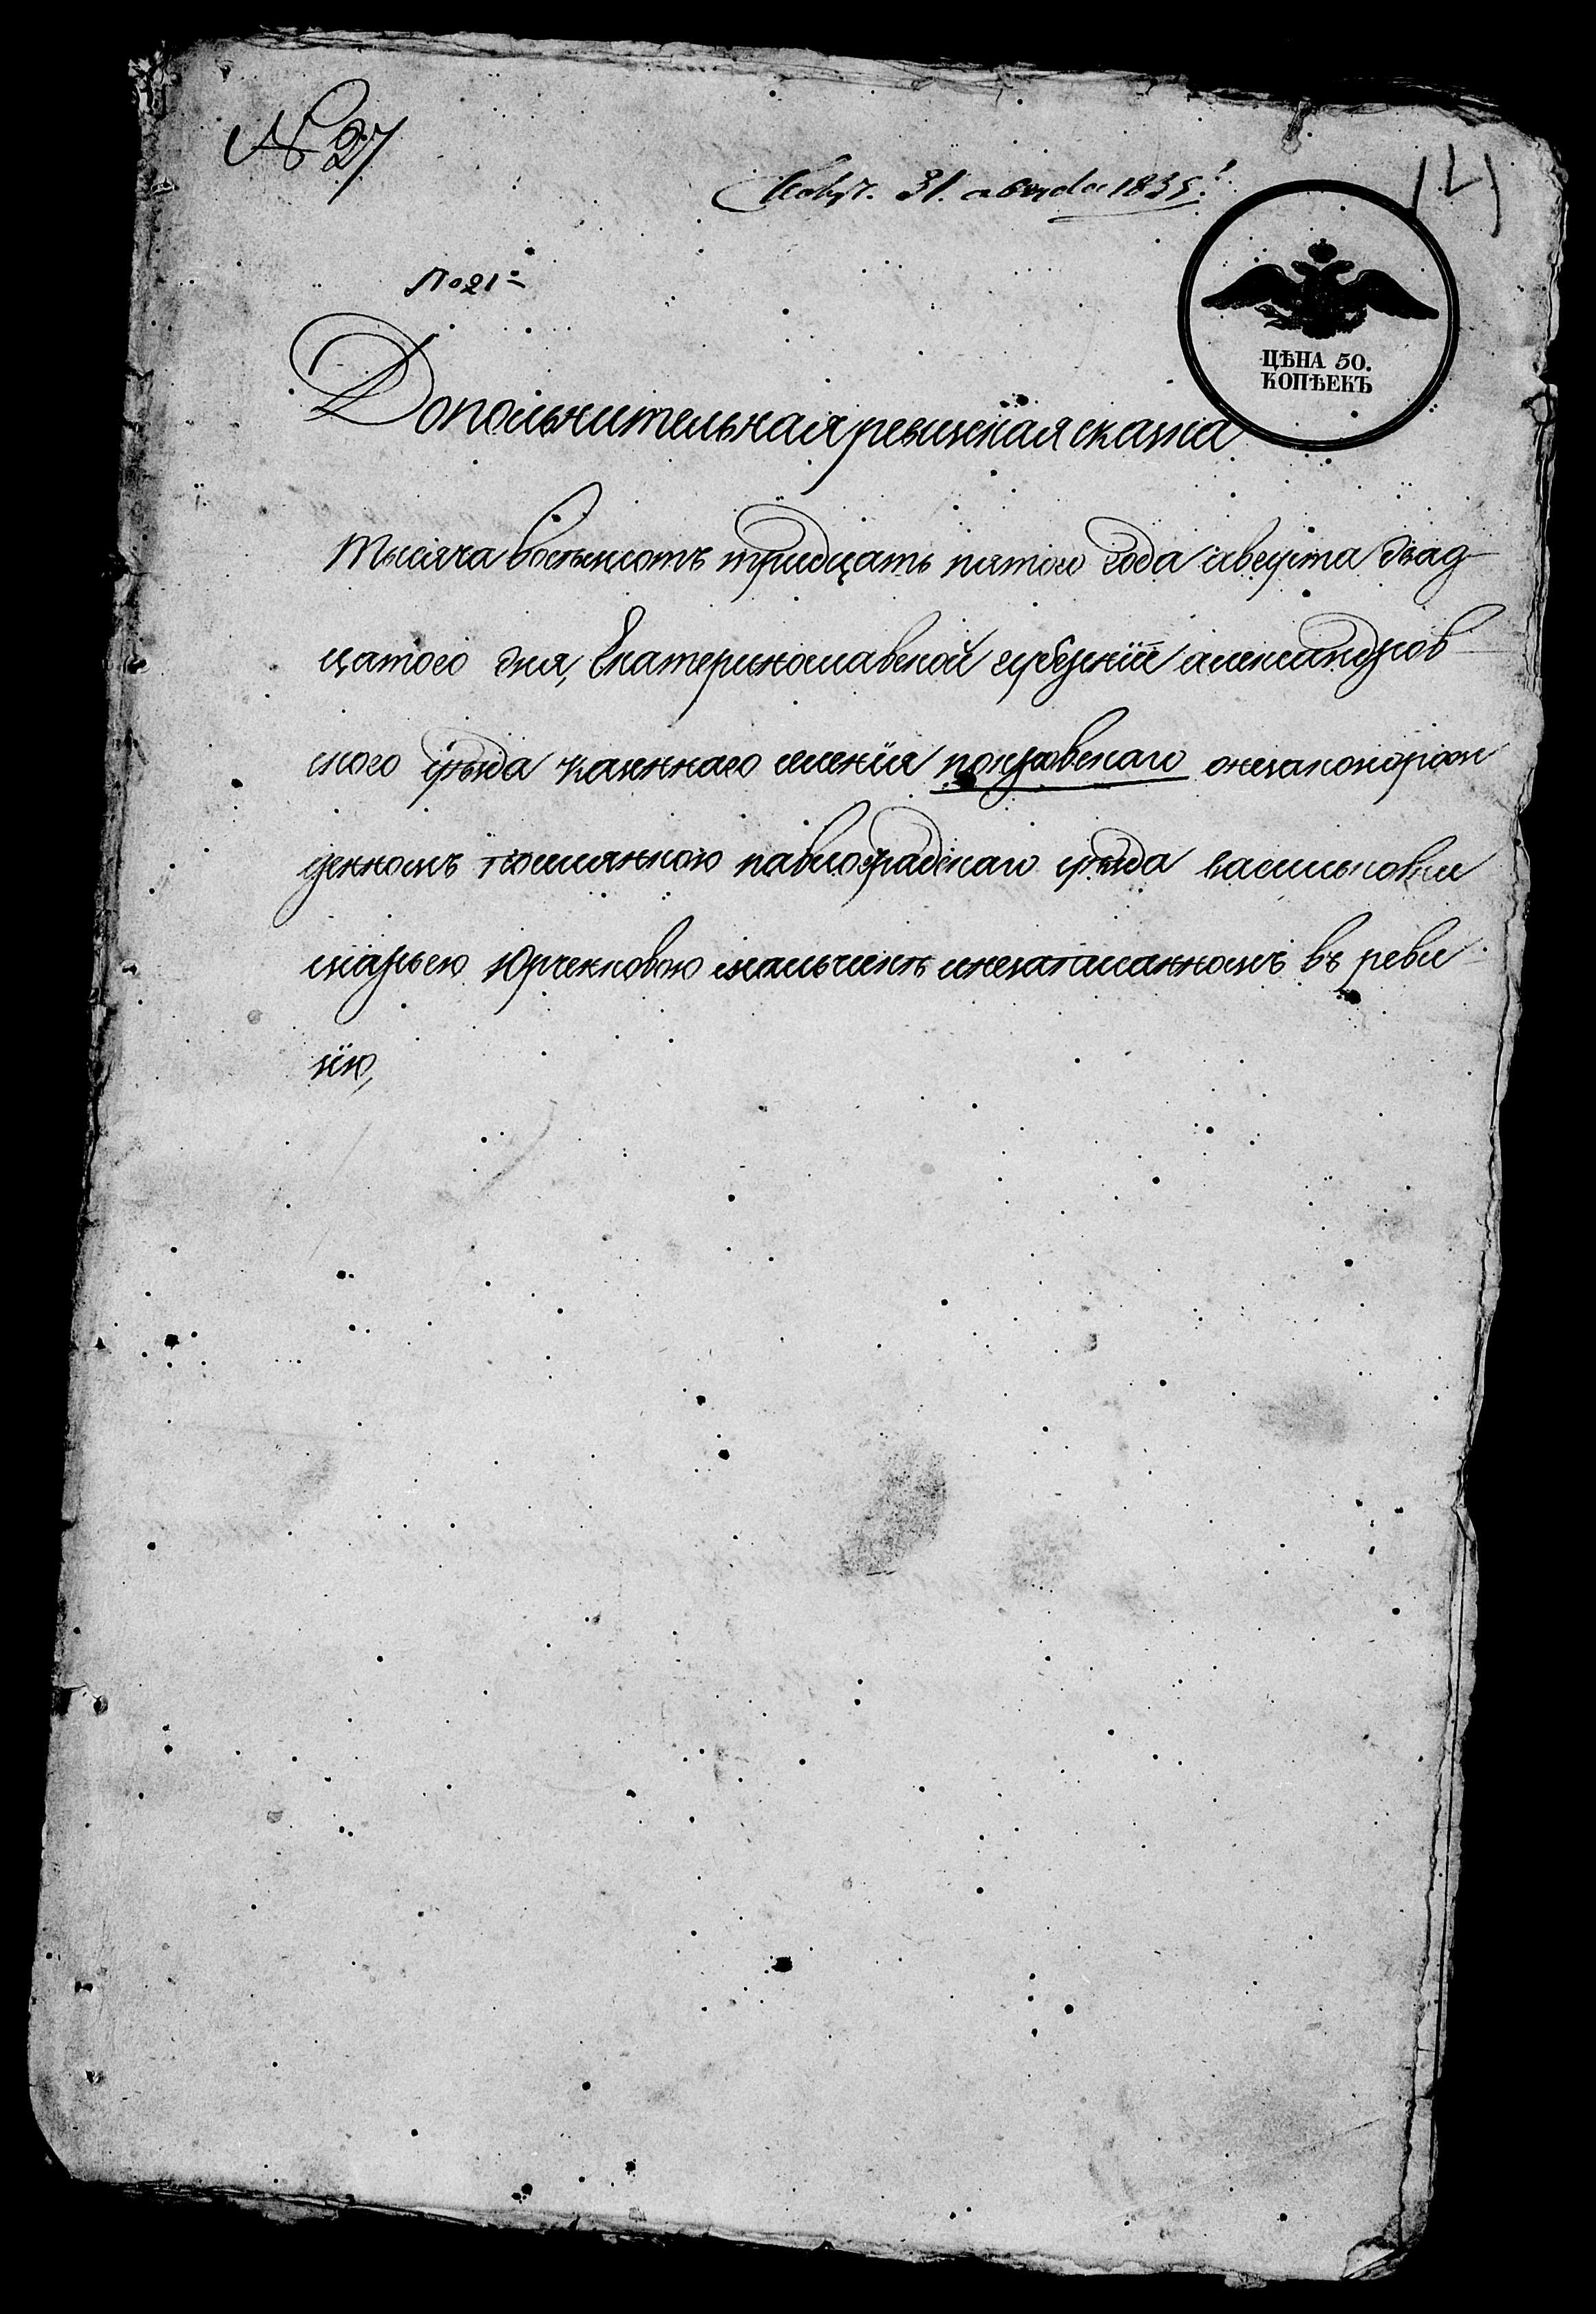 № 27
31. августа 1835.
14
По 21=
ЦѢНА 50.
КОПѢЕКЪ
Дополнительная ревижская сказка
Тысяча восемьсотъ тридцать пятого года августа двад-
цатого дня, Екатеринославской губерніи александров
ского уѣзда казеннаго селенія покровскаго онезаконорож
денномъ посилянкою павлоградскаго уѣзда васильковки
марьею Юрченковою мальчикѣ инезаписанномъ въ реви
зію,